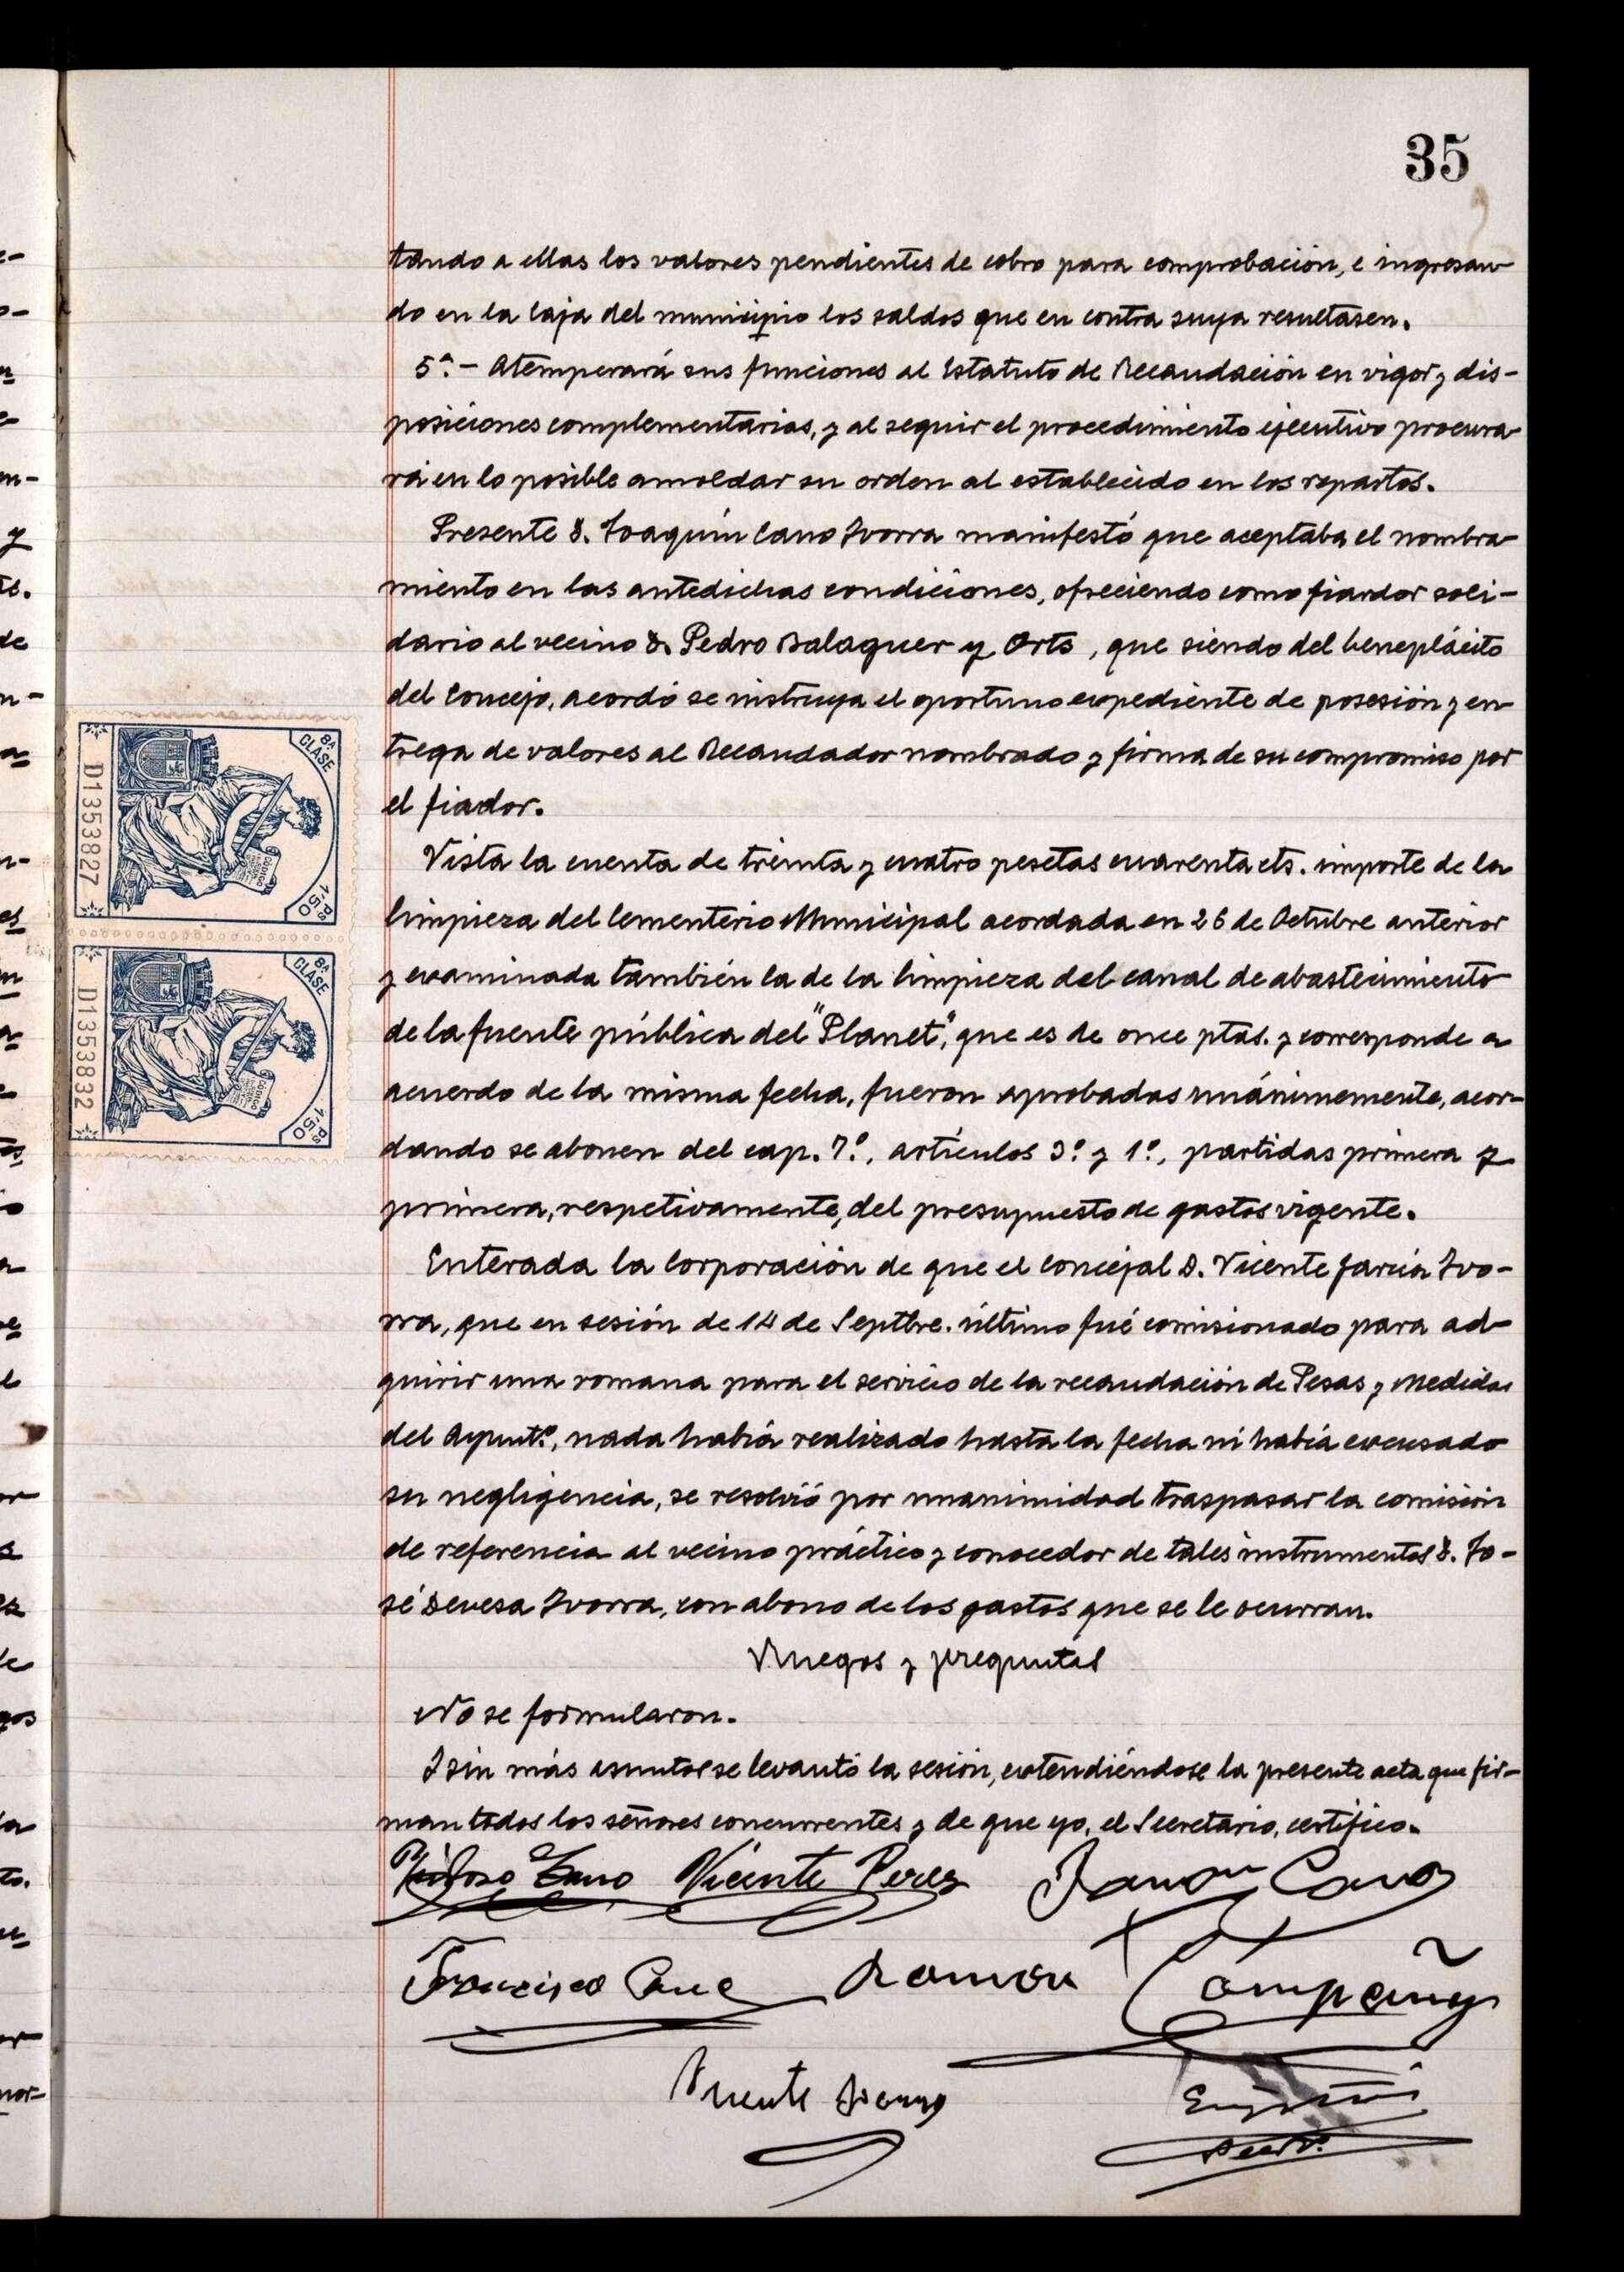 35
tando a ellas los valores pendientes de cobro para comprobación, e ingresan-
do en la Caja del municipio los saldos que en contra suya resultasen.
5ª.- Atemperará sus funciones al Estatuto de Recaudación en vigor y dis-
posiciones complementarias, y al seguir el procedimiento ejecutivo procura-
rá en lo posible amoldar su orden al establecido en los repartos.
Presente D. Joaquín Cano Ivorra manifestó que aceptaba el nombra-
miento en las antedichas condiciones, ofreciendo como fiador soli-
dario al vecino D. Pedro Balaguer y Orts, que siendo del beneplácito
del Concejo, acordó se instruya el oportuno expediente de posesión y en-
trega de valores al Recaudador nombrado y firma de su compromiso por
el fiador.
Vista la cuenta de treinta y cuatro pesetas cuarenta cts. importe de la
limpieza del Cementerio Municipal acordada en 26 de Octubre anterior
y examinada también la de la limpieza del canal de abastecimiento
de la fuente pública del "Planet", que es de once ptas. y corresponde a
acuerdo de la misma fecha, fueron aprobadas unánimemente, acor-
dando se abonen del cap. 7º, artículos 3º y 1º, partidas primera y
primera, respetivamente, del presupuesto de gastos vigente.
Enterada la Corporación de que el Concejal D. Vicente García Ivo-
rra, que en sesión de 14 de Septbre. último fué comisionado para ad-
quirir una romana para el servicio de la recaudación de Pesas y Medidas
del Ayuntº, nada había realizado hasta la fecha ni había excusado
su negligencia, se resolvió por unanimidad traspasar la comisión
de referencia al vecino práctico y conocedor de tales instrumentos D. Jo-
sé Devesa Ivorra, con abono de los gastos que se le ocurran.
Ruegos y preguntas
No se formularon.
I sin más asuntos se levantó la sesión, extendiéndose la presente acta que fir-
man todos los señores concurrentes y de que yo, el Secretario, certifico.
Vicente Perez
Cano
Francisco Cano Ramon Compañy
Vicente
Secrº.
8ª CLASE
1'50 Pts
D1353827
8ª CLASE
1'50 Pts
D1353832